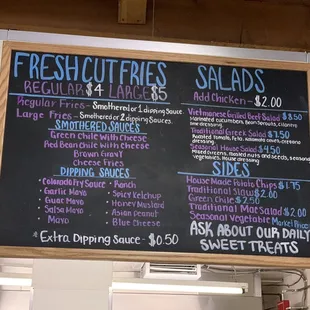 FRESH CUT FRIES
REGULAR $4 LARGE $5
Regular Fries - Smothered or 1 dipping sauce
Large Fries - Smothered or 2 dipping sauces
SMOTHERED SAUCES
Green Chile With Cheese
Red Bean Chile With Cheese
Brown Gravy
Cheese Fries
DIPPING SAUCES
• Colorado Fry Sauce
• Garlic Mayo
• Guac Mayo
• Salsa Mayo
• Mayo
• Ranch
• Spicy Ketchup
• Honey Mustard
• Asian Peanut
• Blue Cheese
* Extra Dipping Sauce - $0.50
SALADS
Add Chicken - $2.00
Vietnamese Grilled Beef Salad $8.50
Marinated cucumbers, Bean Sprouts, cilantro
Traditional Greek Salad $7.50
Romaine, Tomato, Feta, Kalamata olives, Oregano
dressing
Seasonal House Salad $4.50
Mixed greens, Roasted nuts and seeds, seasonal
vegetables, house dressing
SIDES
House Made Potato Chips $1.75
Traditional Slaw $2.00
Green Chile $2.50
Traditional Mac Salad $2.00
Seasonal Vegetable Market Price
ASK ABOUT OUR DAILY
SWEET TREATS